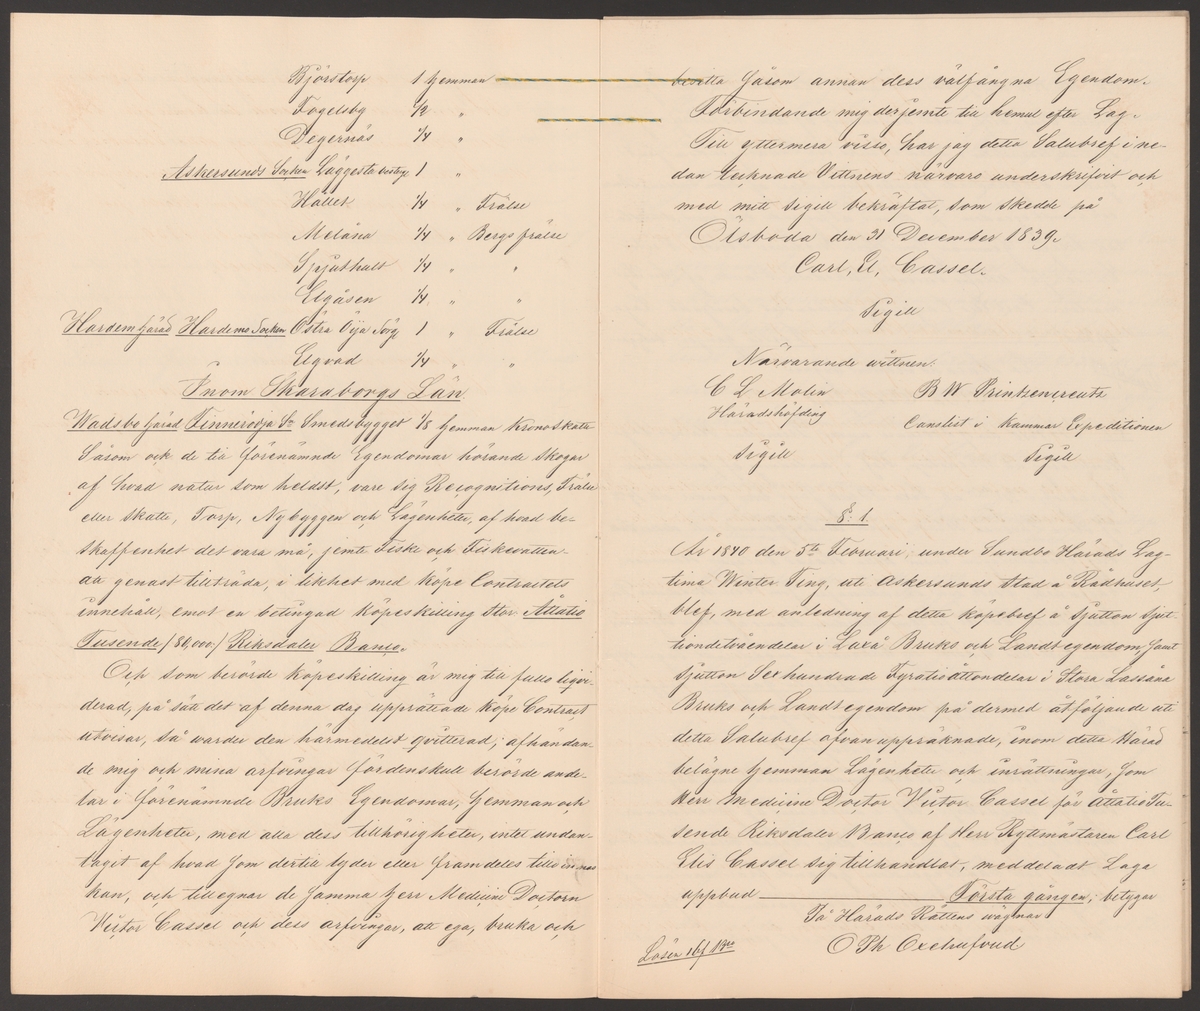 Björstorp 1 hemman
Fogelsby 1/2 "
Degernäs 1/4 "
Askersunds Socken Läggesta 1 "
Hallet 1/4 " Frälse
Meläna 1/4 " Bergsfrälse
Spjuthult 1/4 " "
Elgåsen 1/4 " "
Hardem härad Hardemo Socken Östra Öÿa 1 " Frälse
Elgvad 1/4 " "
Inom Skaraborgs Län
Wadsbo härad Finnerödja Sn Smedsbygget 1/8 hemman Kronoskatte
Såsom ock de till förenämnde Egendomar hörande Skogar
af hvad natur som heldst, vare sig Recognitions, Frälse
eller Skatte, Torp, Nybyggen och Lägenheter, af hvad be-
skaffenhet det vara må, jemte Fiske och Fiskevatten
att genast tillträda, i likhet med Köpe Contractets
innehåll, emot en betingad Köpeskilling stor Åttatio
Tusende /80,000/ Riksdaler Banco.
Och som berörde köpeskilling är mig till fullo liqvi-
derad, på sätt det af denna dag upprättade Köpe Contract
utvisar, så warder den härmedelst qvitterad; afhändan-
de mig och mina arfvingar fördenskull berörde ande-
lar i förenämnde Bruks Egendomar, hemman och
Lägenheter, med alla dess tillhörigheter, intet undan-
taget af hvad som dertill lyder eller framdeles tillvinnas
kan, och tillegnar de samma herr Medicine Doctorn
Victor Cassel och dess arfvingar, att ega, bruka och
besitta såsom annan dess välfångna Egendom.
Förbindande mig derjemte till hemul efter Lag.
Till yttermera visso, har jag detta Salubref i ne-
dan tecknade Vittnens närvaro underskrifvit och
med mitt sigill bekräftat, som skedde på
Ölsboda den 31 December 1839.
Carl, El, Cassel.
Sigill
Närvarande wittnen
C L Molin
Häradshöfding
Sigill
B W Printzencreutz
Canslist i Kammar Expeditionen
Sigill
§: 1.
År 1840 den 5te Februari, under Sundbo Härads Lag-
tima Winter Ting, uti Askersunds Stad å Rådhuset,
blef, med anledning af detta köpebref å sjutton Sjut-
tiondetvåendelar i Laxå Bruks och Landtegendom samt
sjutton Sexhundrade Fyratioåttondelar i Stora Lassåna
Bruks och Landtegendom på dermed åtföljande uti
detta Salubref ofvan uppräknade, inom detta Härad
belägne hemman Lägenheter och inrättningar, som
Herr Medicine Doctor Victor Cassel för Åttatio Tu-
sende Riksdaler Banco af Herr Ryttmästaren Carl
Elis Cassel sig tillhandlat, meddeladt Laga
uppbud Första gången; betygar
På Härads Rättens wägnar
O Ph Oxehufvud
Lösen 16/ Bco